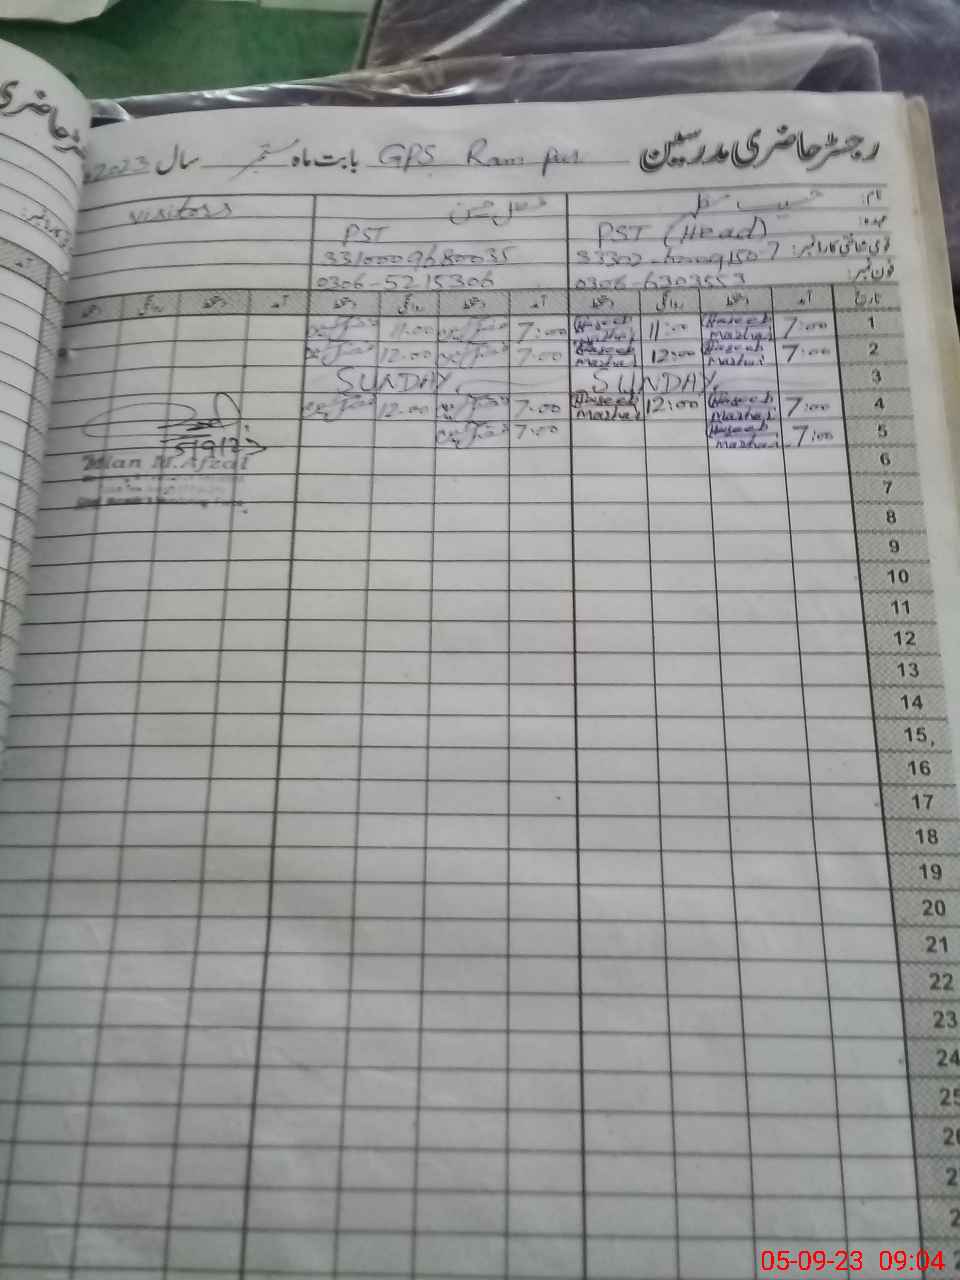 رجسٹر حاضری مدرسین GPS Ram pur بابت ماہ ستمبر سال 2023
نام: حسیب مظہر visitors
عہدہ: PST (Head) PST
قومی شناختی کارڈ نمبر:
فون نمبر: 0306-6303553 0306-5215306
تاریخ آمد دستخط روانگی دستخط آمد دستخط روانگی دستخط آمد دستخط روانگی دستخط
1 7:00 Haseeb Mazhar 11:00 Haseeb Mazhar 7:00 11:00
2 7:00 Haseeb Mazhar 12:00 Haseeb Mazhar 7:00 12:00
3 SUNDAY. SUNDAY.
4 7:00 Haseeb Mazhar 12:00 Haseeb Mazhar 7:00 12:00
5 7:00 Haseeb Mazhar 7:00
6
Mian M. Afzal
7
8
9
10
11
12
13
14
15
16
17
18
19
20
21
22
23
24
25
05-09-23 09:04